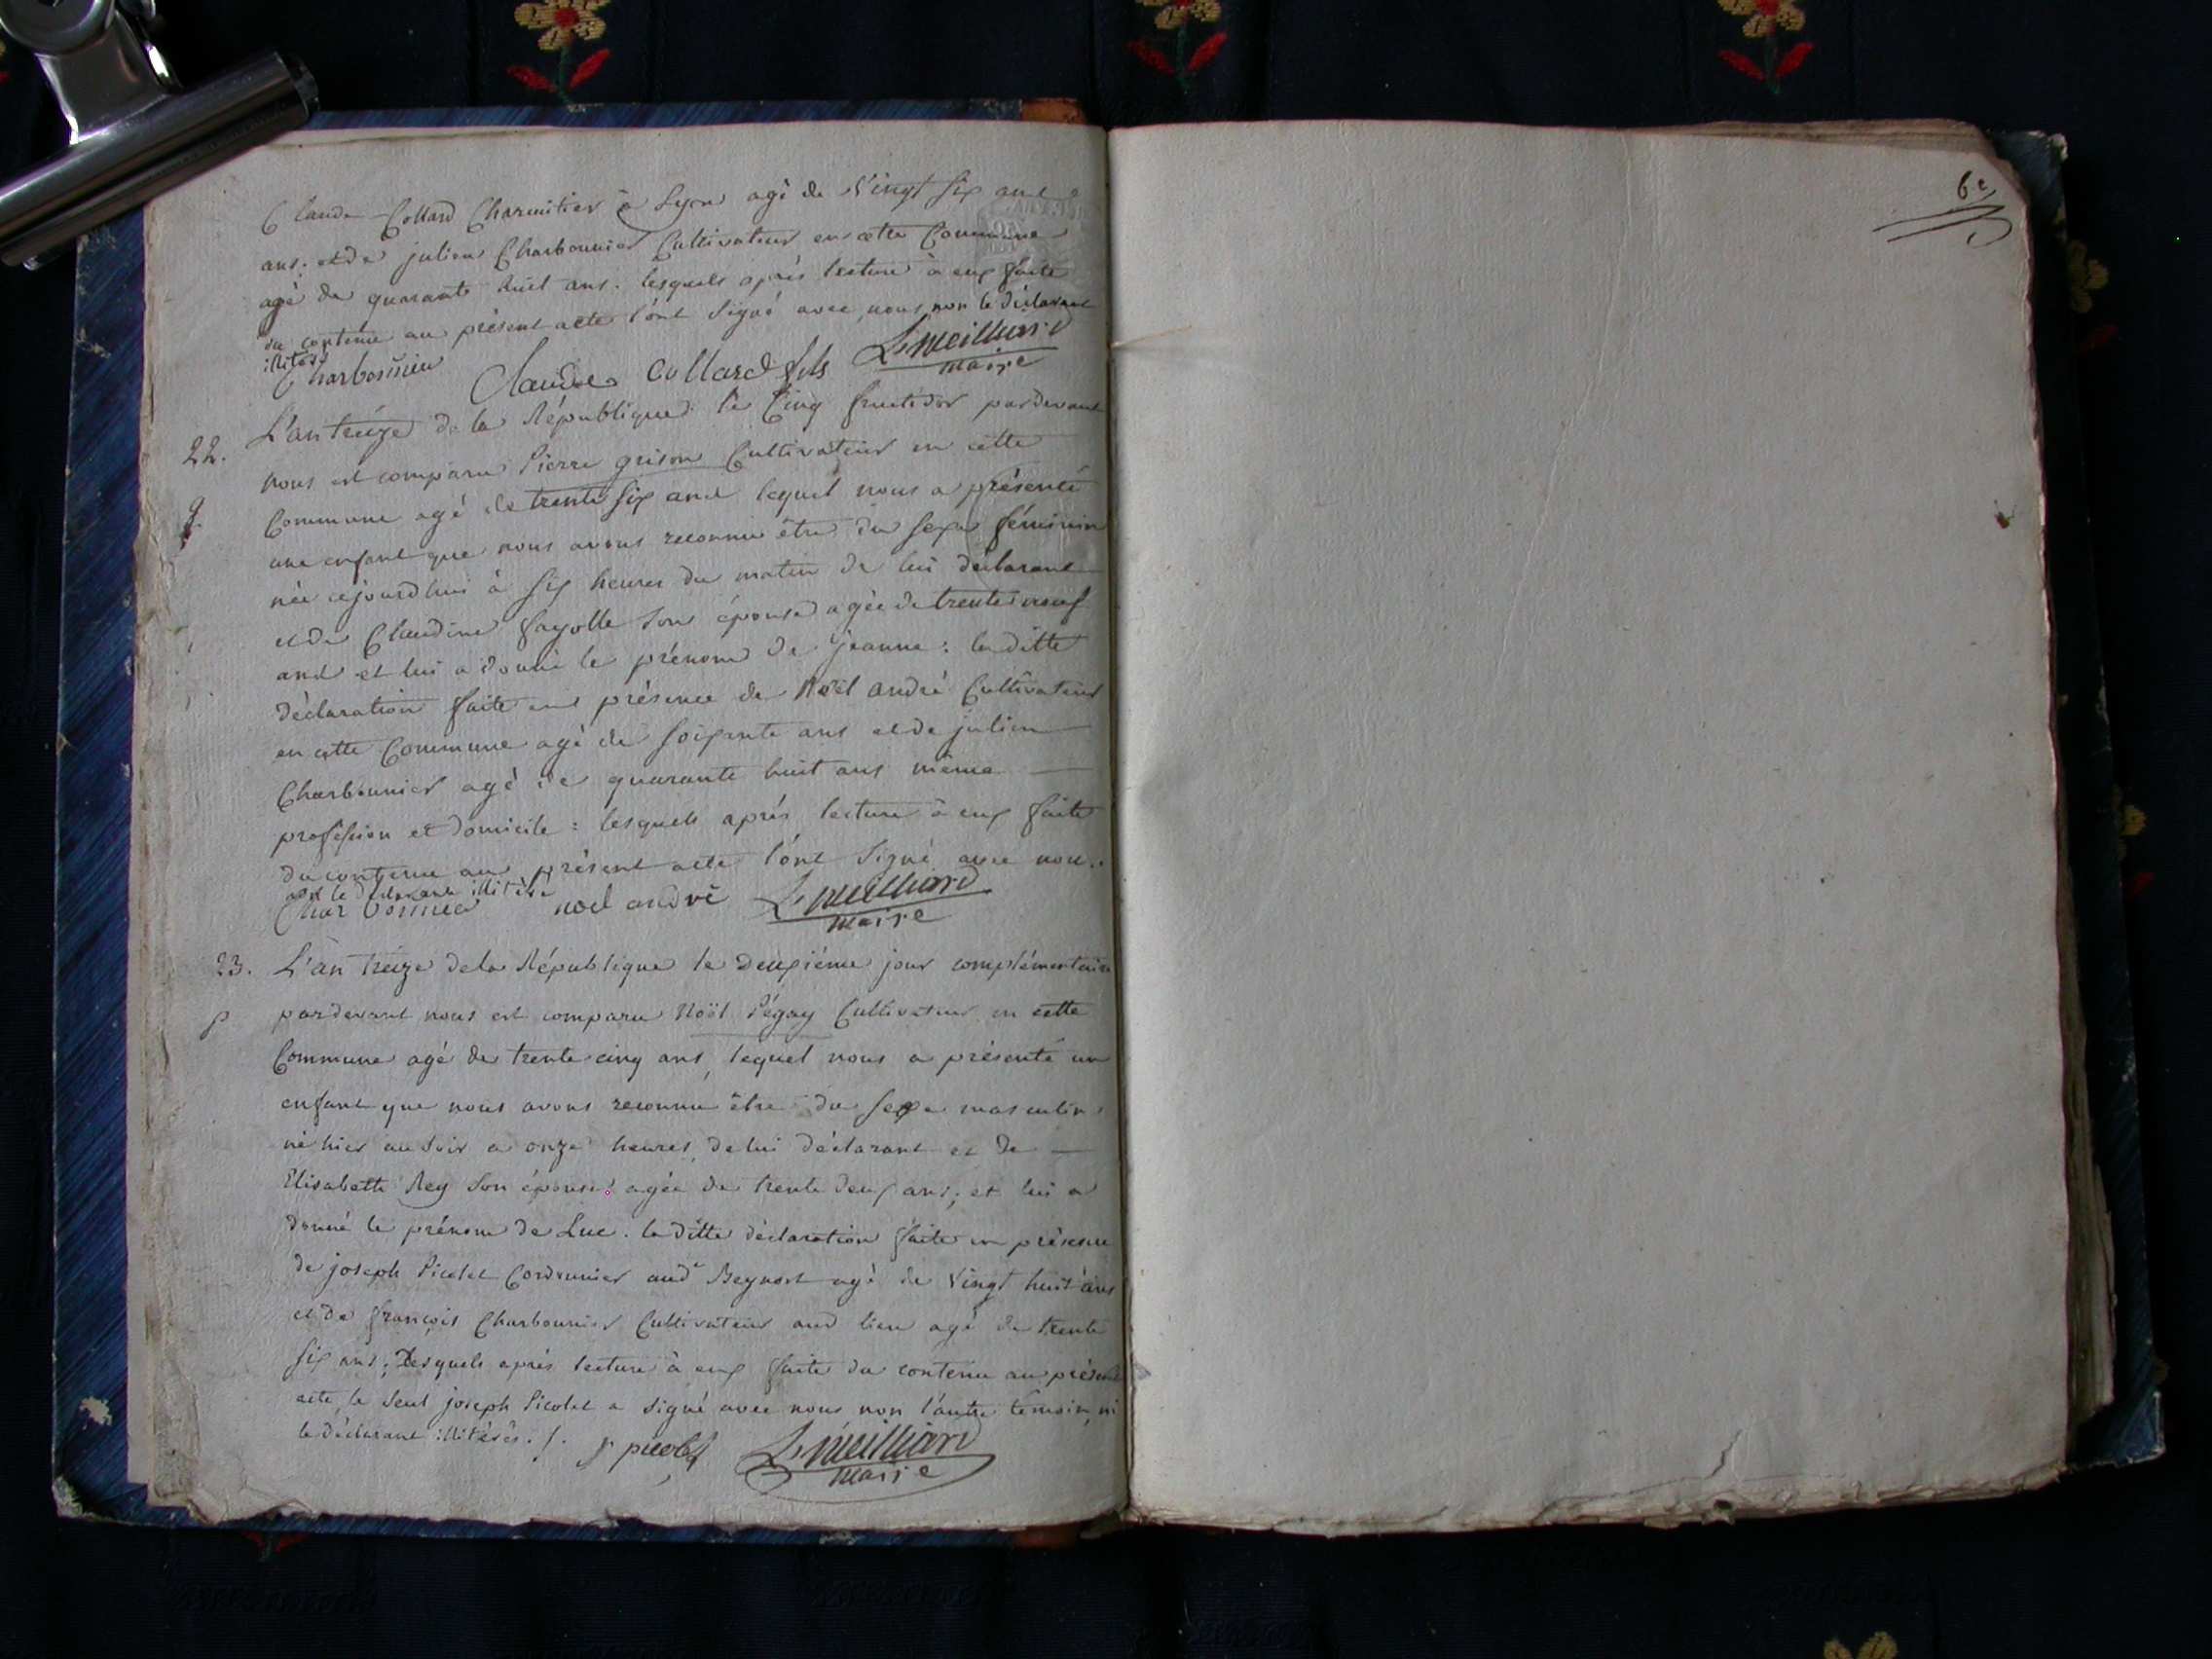 Claude Collard Charcutier à Lyon agé de Vingt six ans
ans; et de julien Charbonnier Cultivateur en cette Commune
agé de quarante huit ans. lesquels après lecture à eux faite
du contenu au présent acte l'ont signé avec nous non le déclarant
illitéré
Charbonnier Claude Collard fils L. Meilliard
maire
22. L'an treize de la République le Cinq fructidor pardevant
nous est comparu Pierre grison Cultivateur en cette
g. Commune agé de trente six ans lequel nous a présenté
une enfant que nous avons reconnu être du sexe féminin
née cejourdhui à six heures du matin de lui déclarant
et de Claudine fayolle son épouse agée de trente neuf
ans et lui a donné le prénom de jeanne: la ditte
déclaration faite en présence de Noël andré Cultivateur
en cette Commune agé de soixante ans et de julien
Charbonnier agé de quarante huit ans même
profession et domicile: lesquels après lecture à eux faite
du contenu au présent acte l'ont signé avec nous.
non le déclarant illitéré
Charbonnier noel andré L. Meilliard
maire
23. L'an treize de la République le deuxième jour complémentaire
p pardevant nous est comparu Noël Pégay Cultivateur en cette
Commune agé de trente cinq ans, lequel nous a présenté un
enfant que nous avons reconnu être du sexe masculin
né hier au soir a onze heures, de lui déclarant et de
Elisabette Rey son épouse agée de trente deux ans; et lui a
donné le prénom de Luc. la ditte déclaration faite en présence
de joseph Picolet Cordonnier aud Beynost agé de Vingt huit ans
et de françois Charbonnier Cultivateur aud lieu agé de trente
six ans; Lesquels après lecture à eux faite du contenu au présent
acte, le seul joseph Picolet a signé avec nous non l'autre témoin, ni
le déclarant illitérés. /. j picolet L. Meilliard
maire
6e